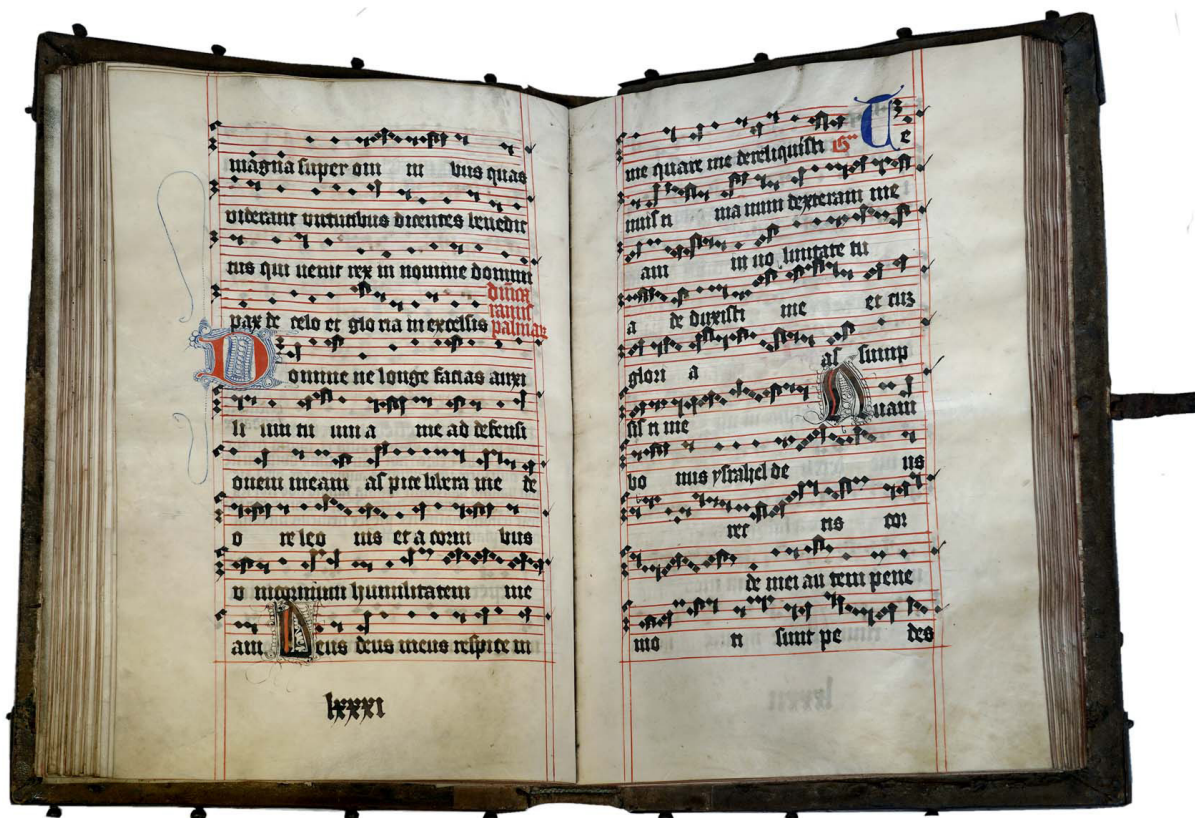 magna super om ni bus quas
viderant virtutibus dicentes benedic
tus qui venit rex in nomine domini
dn̄ica
pax de celo et glo ria in excelsis
ramis
palmaꝝ
Domine ne longe facias auxi
li um tu um a me ad defensi
onem meam as pice libera me de
o re leo nis et a corni bus
u nicornium humilitatem me
am Deus deus meus respice in
lxxxi
me quare me dereliquisti Gr̄ Te
nuis ti ma num dexteram me
am in vo luntate tu
a de duxisti me et cuz
glori a as sump
sis ti me Quam
bo nus ysrahel de us
rec tis cor
de mei au tem pene
mo ti sunt pe des